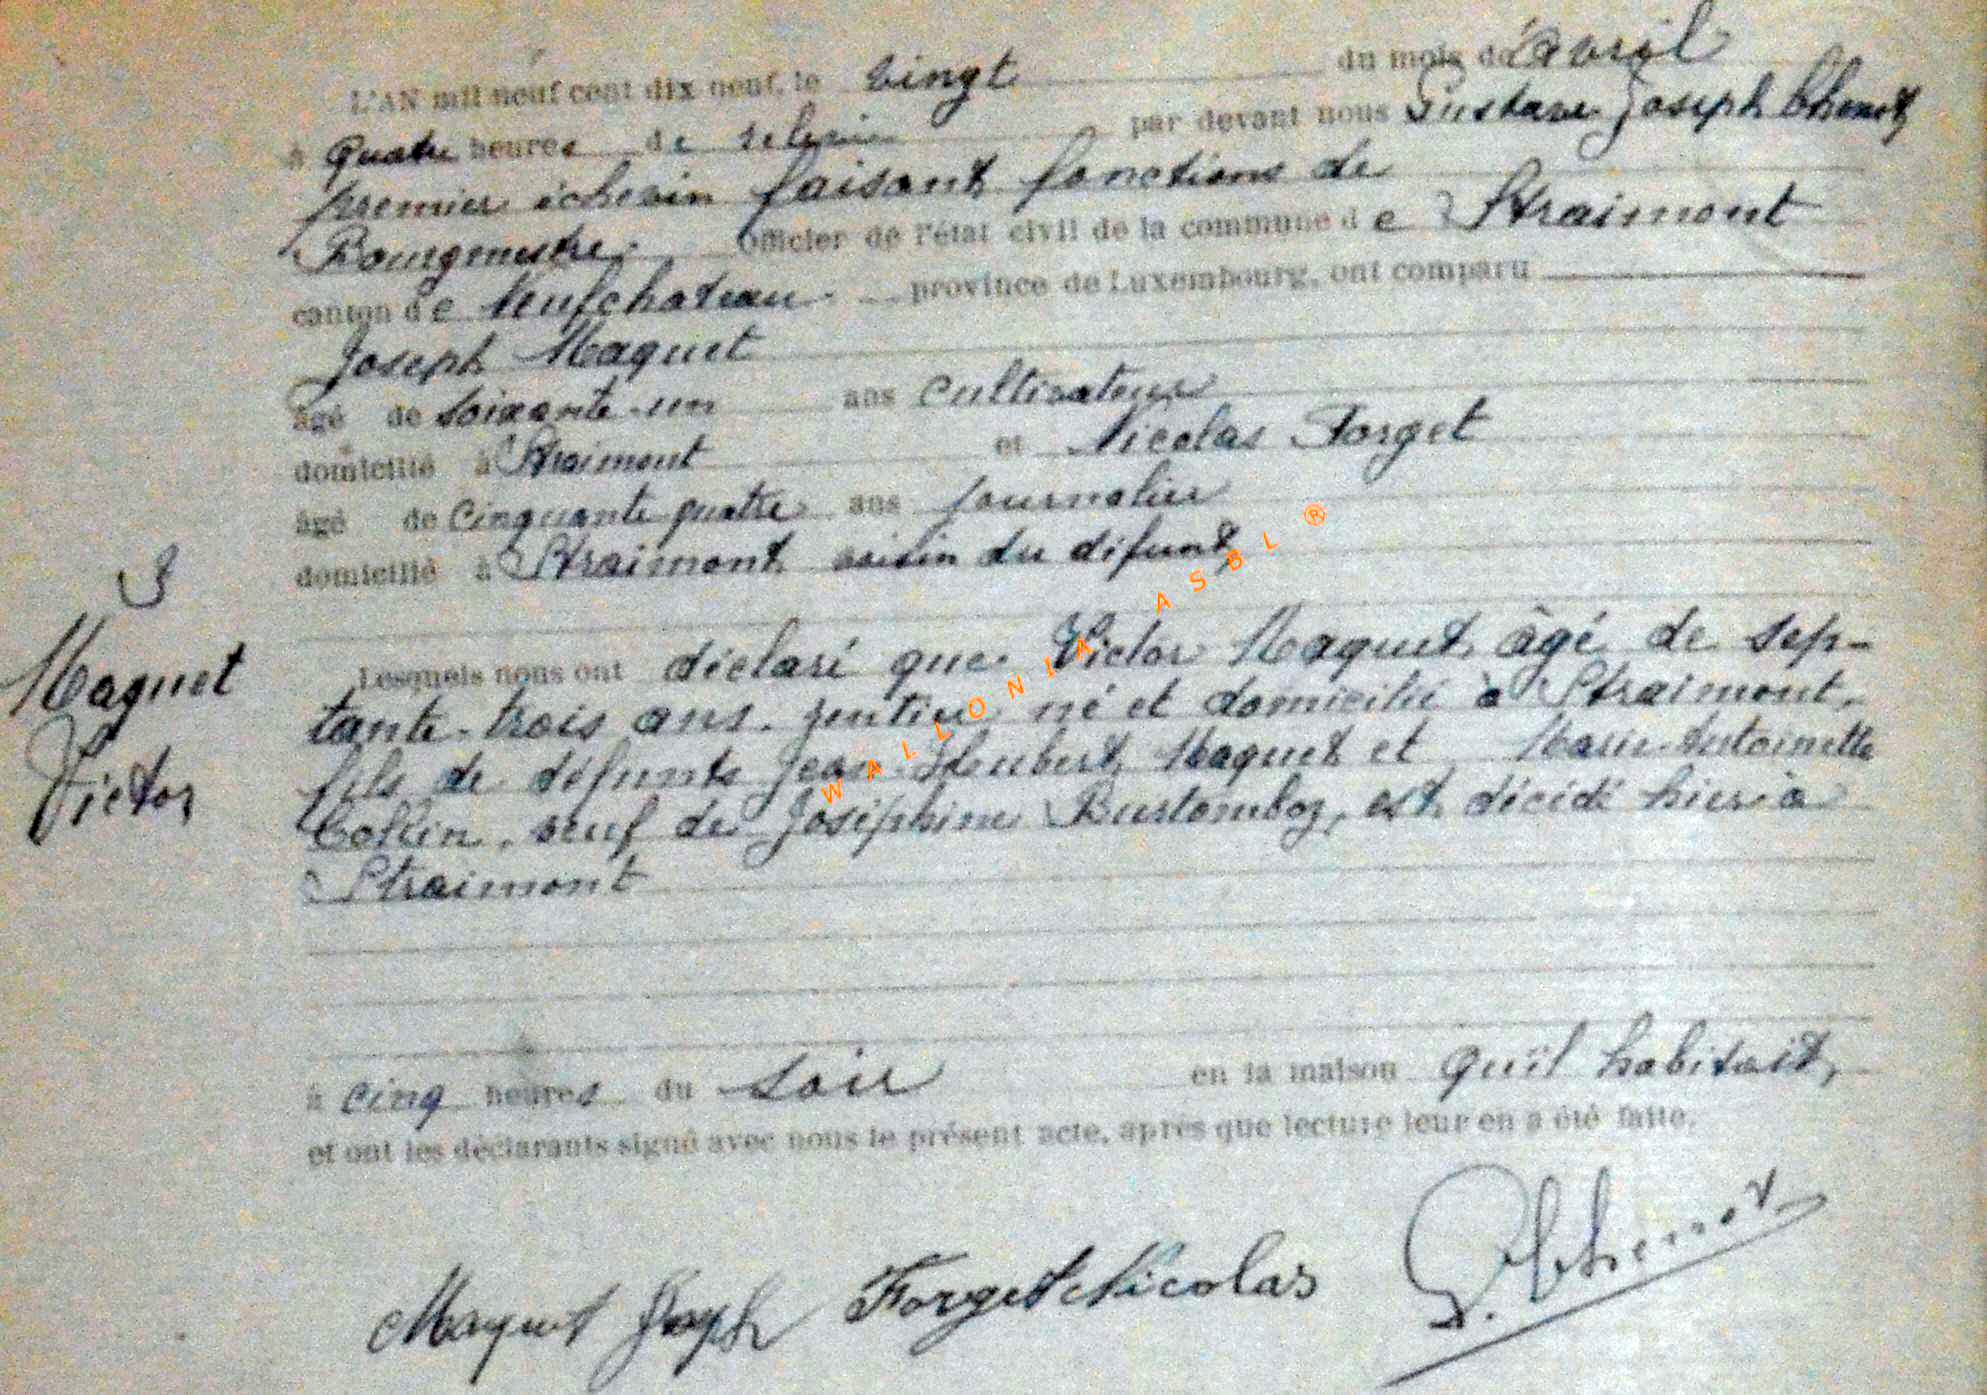 L'AN mil neuf cent dix neuf, le vingt du mois d'avril
à quatre heures de relevée par devant nous Gustave Joseph Chenot
premier échevin faisant fonctions de
Bourgmestre. Officier de l'état civil de la commune de Straimont
canton de Neufchateau. province de Luxembourg, ont comparu
Joseph Maquet
âgé de soixante-un ans cultivateur
domicilié à Straimont et Nicolas Forget
âgé de cinquante quatre ans journalier
domicilié à Straimont voisin du défunt
3
Maquet
Victor
Lesquels nous ont déclaré que Victor Maquet, âgé de sep-
tante-trois ans. rentier né et domicilié à Straimont,
fils de défunts Jean-Hubert Maquet et Marie-Antoinette
Collin, veuf de Joséphine est décédé hier à
Straimont
à cinq heures du soir en la maison qu'il habitait,
et ont les déclarants signé avec nous le présent acte, après que lecture leur en a été faite.
Maquet Joseph Forget Nicolas G. Chenot
WALLONIA ASBL ®